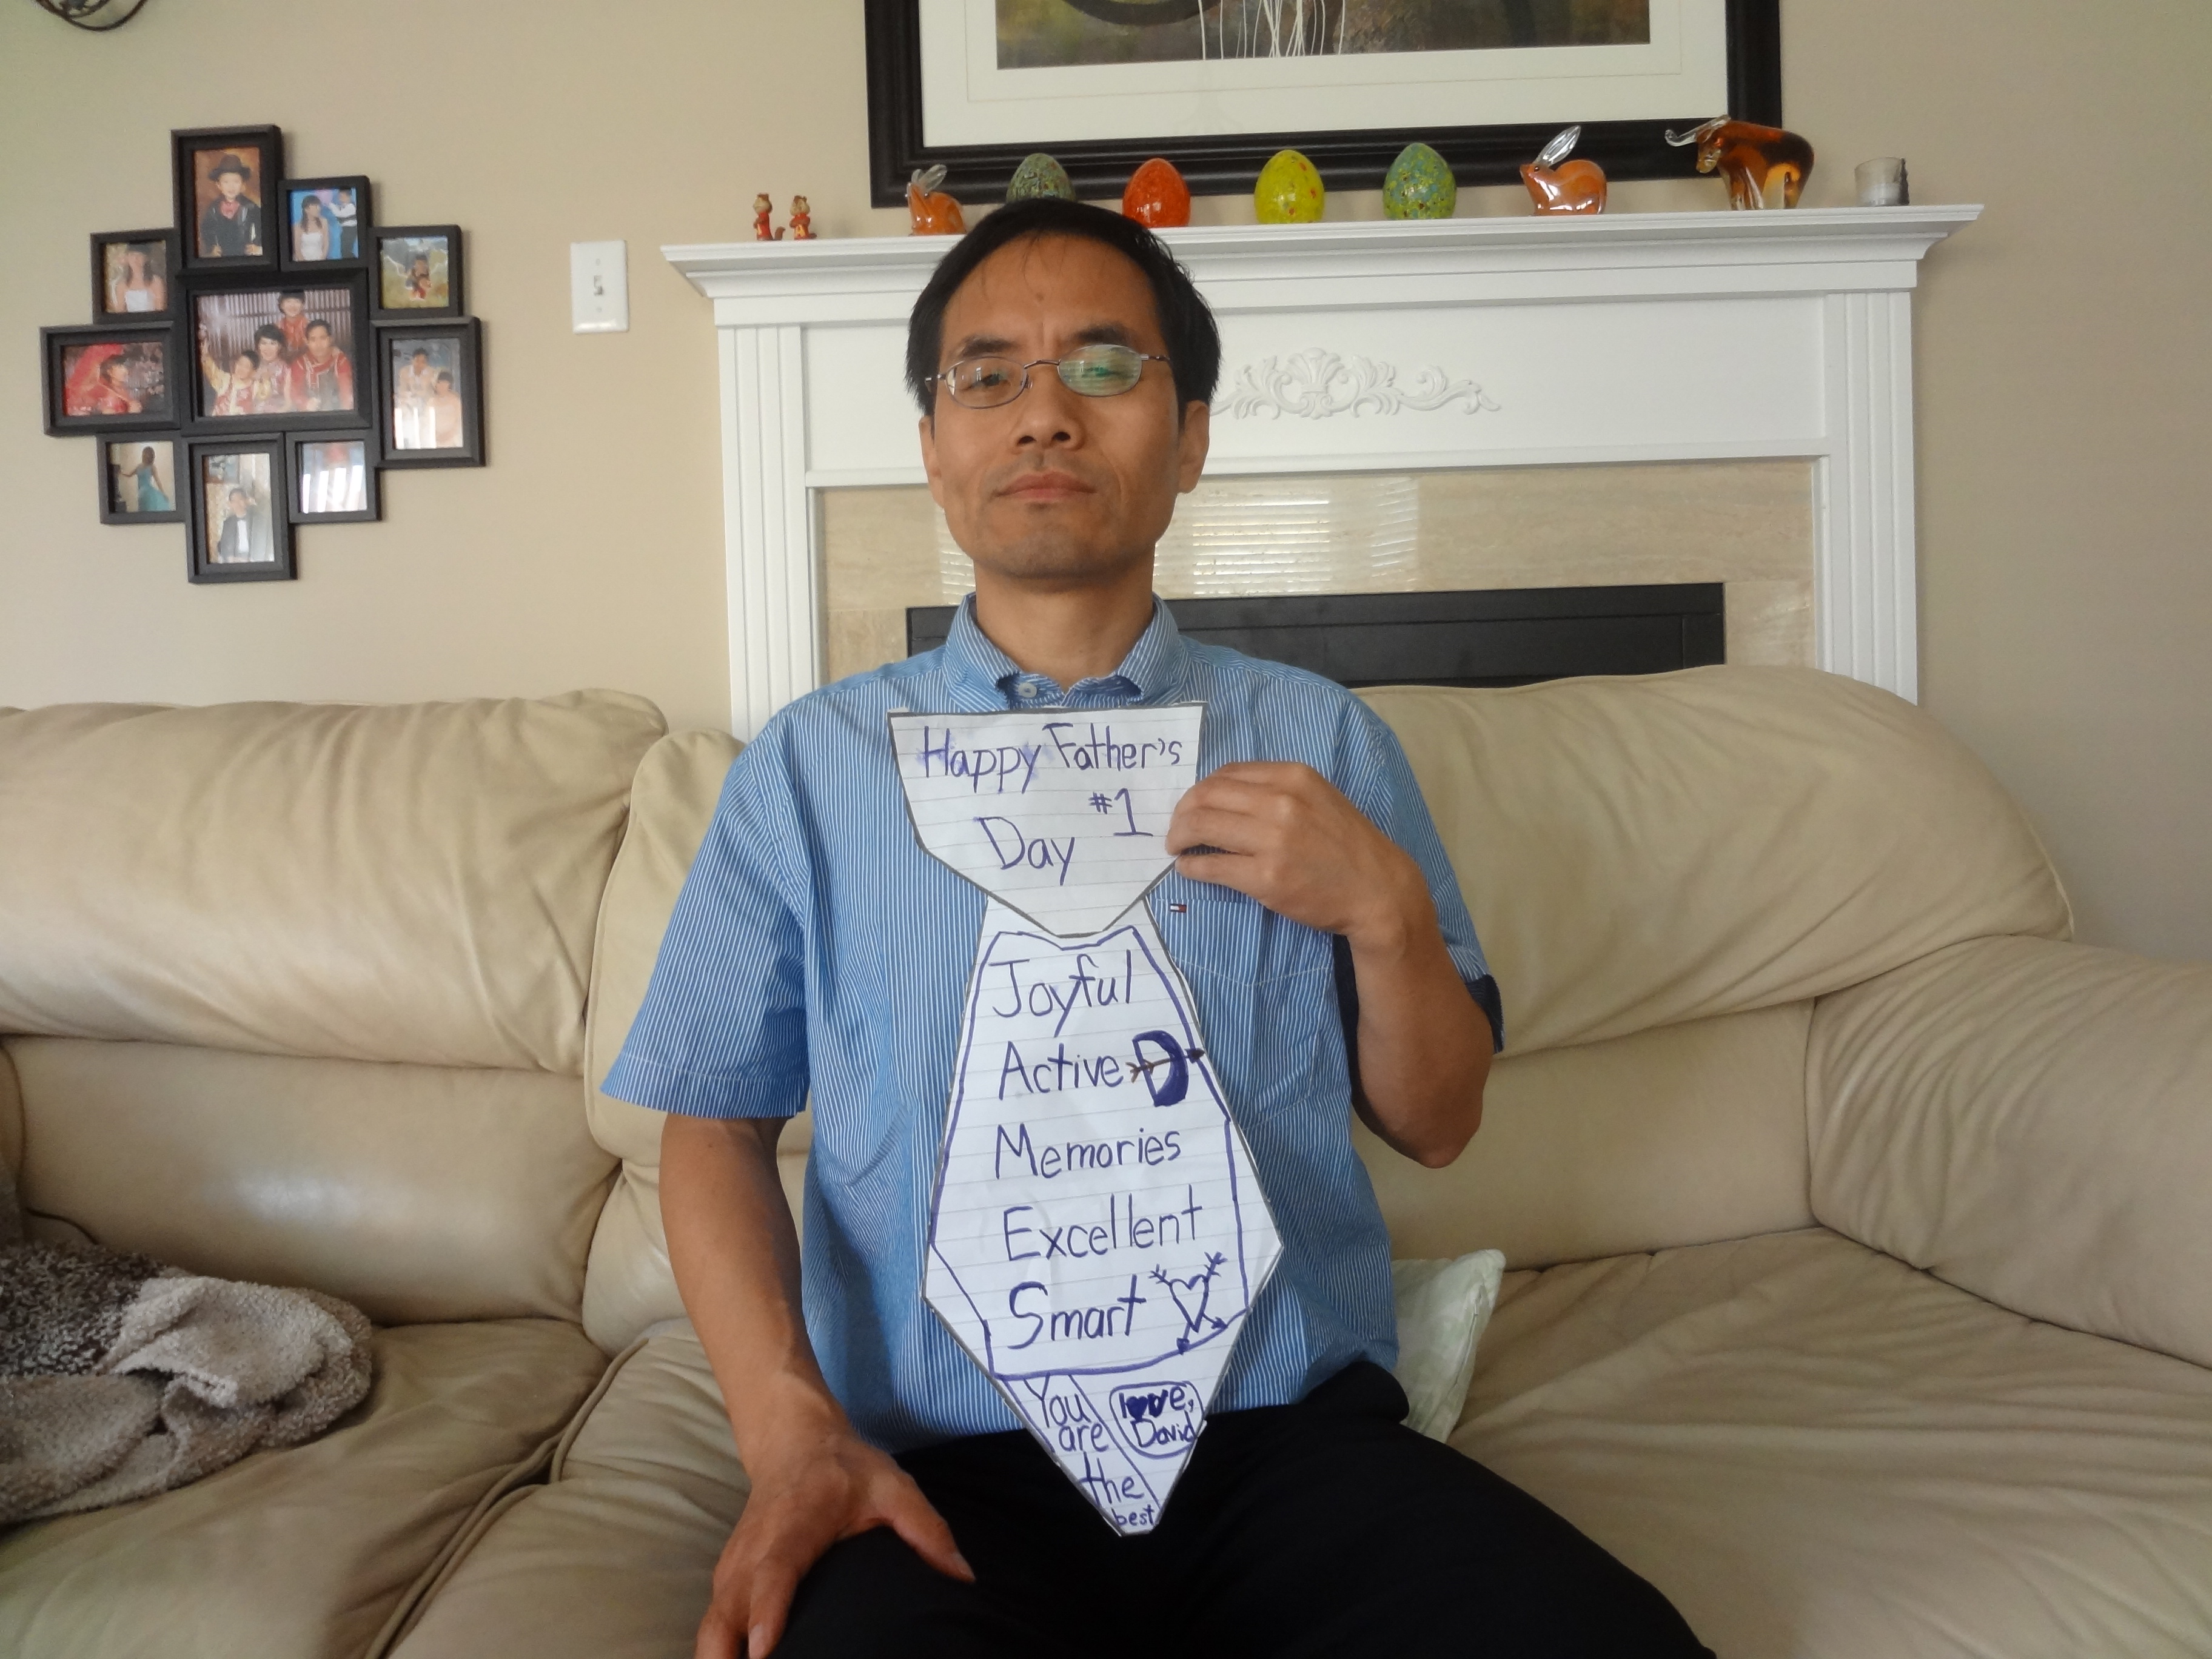 Happy Father's
Day #1
Joyful
Active
Memories
Excellent
Smart
You
are
the
best
love,
David